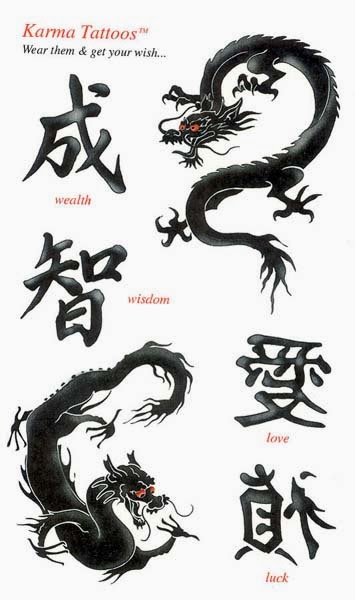 Karma Tattoos™
Wear them & get your wish...
成
wealth
智
wisdom
愛
love
禎
luck